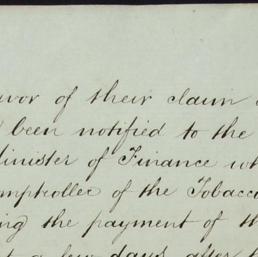 avor of their claim
been notified to the
Minister of Finance wh
omptroller of the Tobacco
ing the payment of th
t a few days after